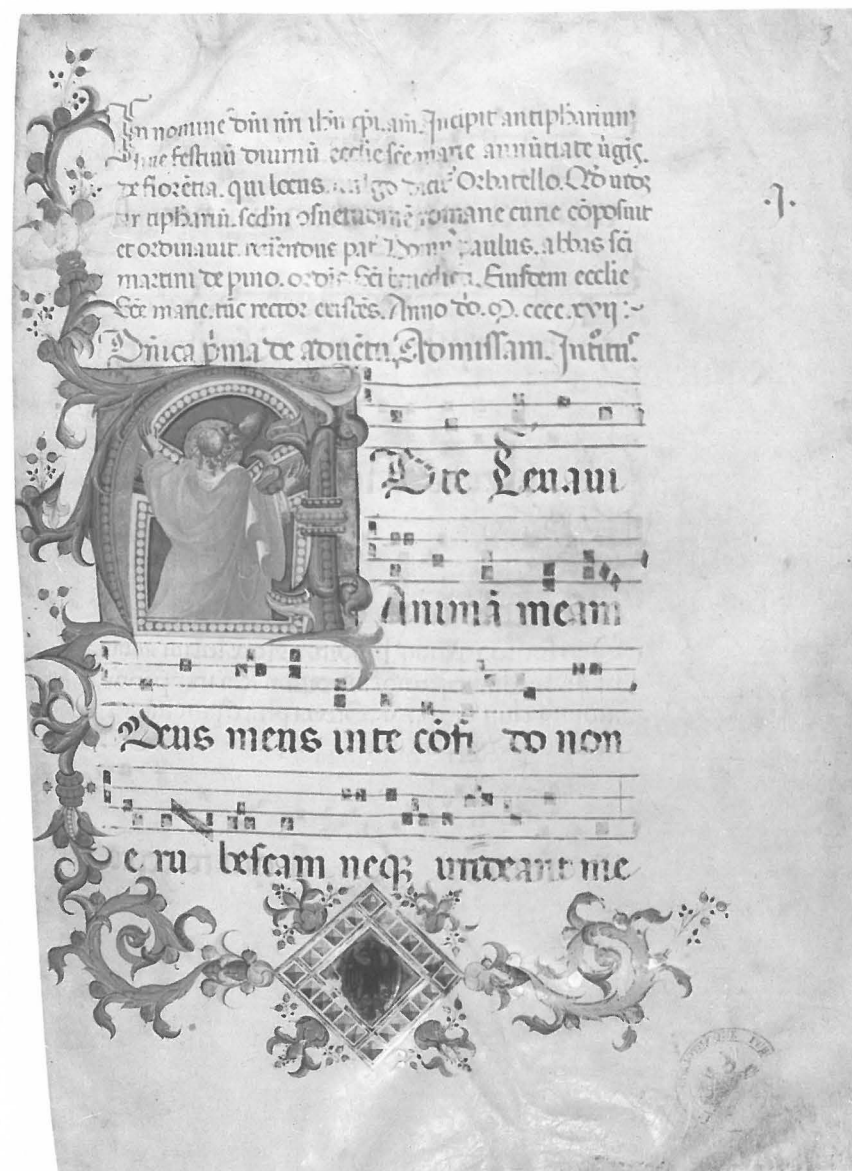 3
In nomine dñi nr̄i ihū xp̄i. am̄. Incipit antiphariuȝ
siue festiuū diurnū ecclie sce marie annūtiate ūgis.
de fiorētia. qui locus. uulgo dicit̄ Orbatello. Qd̄
antiphariū. sedm romane curie cōposuit
et ordinauit. pat̄ paulus. abbas sci
martini de pino. ordis Sci benedicti. Eiusdem ecclie
Sce marie. tūc rector existēs. Anno dō. M. cccc. xvij :~
·J·
Dñica p̄ma de aduētu. Ad missam. Introit⁹.
A Dte Leuaui
Animā meam
Deus meus inte cōfi do non
e ru bescam neqȝ irrideant me